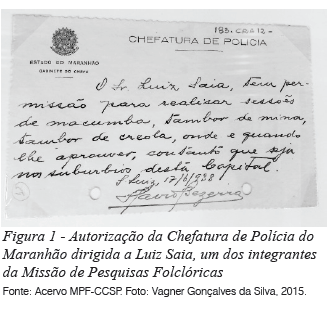 183. CRA 12-
ESTADO DO MARANHÃO
GABINETE DO CHEFE
CHEFATURA DE POLICIA
O Sr. Luiz Saia, tem per-
missão para realizar sessões
de macumba, tambor de mina,
tambor de creola, onde e quando
lhe aprouver, contanto que seja
nos suburbios desta Capital.
S. Luiz, 17/6/938
Flavio Bezerra
Figura 1 - Autorização da Chefatura de Polícia do
Maranhão dirigida a Luiz Saia, um dos integrantes
da Missão de Pesquisas Folclóricas
Fonte: Acervo MPF-CCSP. Foto: Vagner Gonçalves da Silva, 2015.